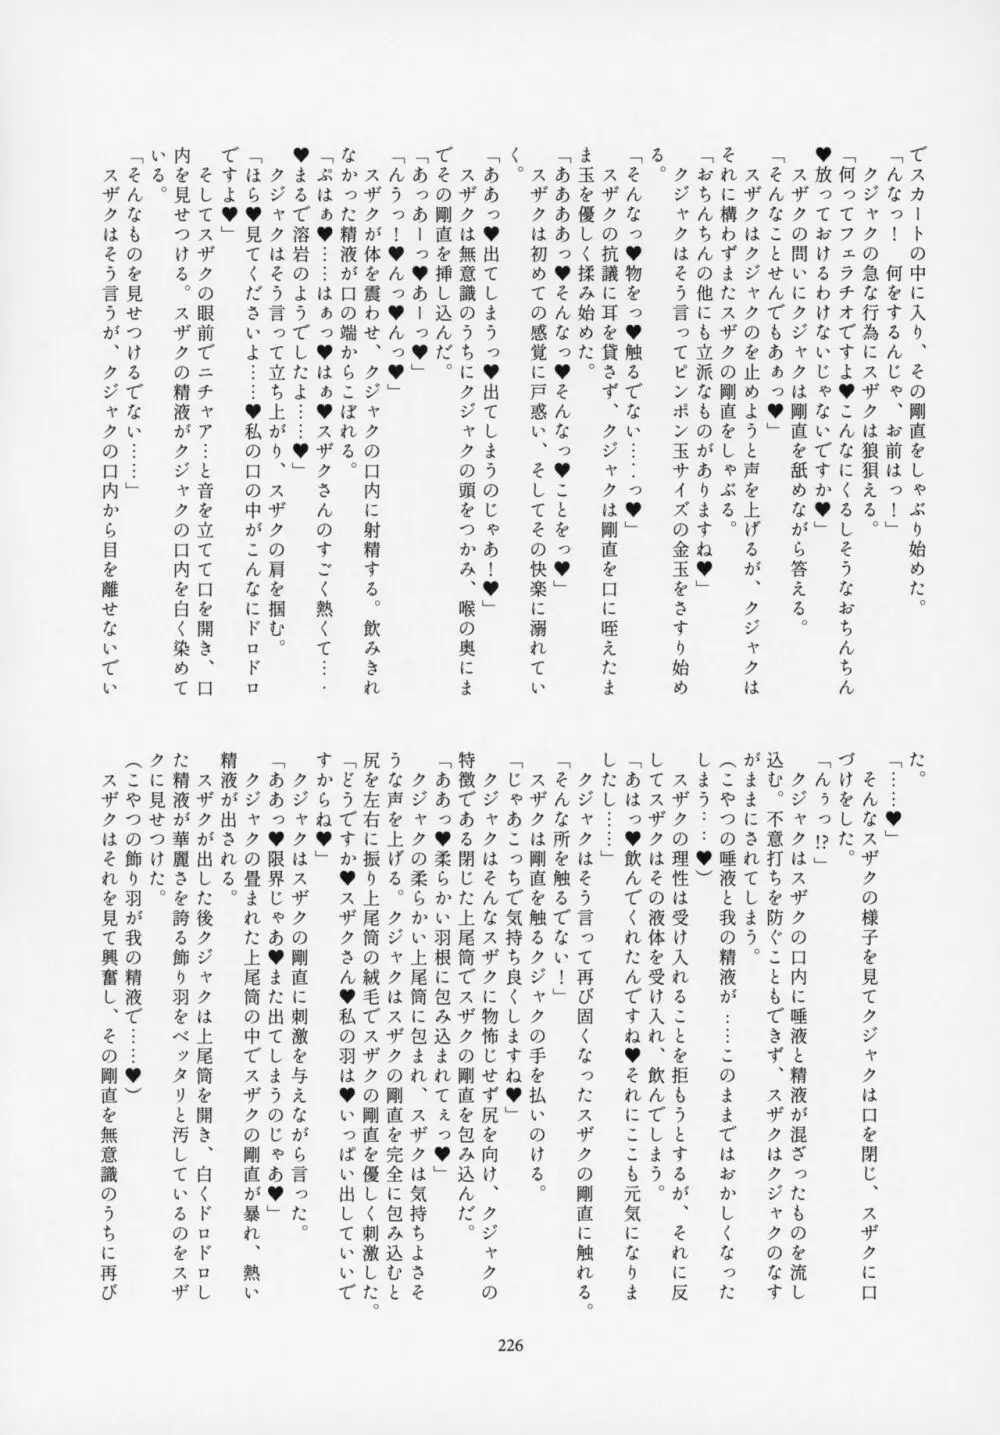 でスカートの中に入り、その剛直をしゃぶり始めた。
「んなっ！　何をするんじゃ、お前はっ！」
クジャクの急な行為にスザクは狼狽える。
「何ってフェラチオですよ♥こんなにくるしそうなおちんちん
♥放っておけるわけないじゃないですか♥」
スザクの問いにクジャクは剛直を舐めながら答える。
「そんなことせんでもあぁっ♥」
スザクはクジャクのを止めようと声を上げるが、クジャクは
それに構わずまたスザクの剛直をしゃぶる。
「おちんちんの他にも立派なものがありますね♥」
クジャクはそう言ってピンポン玉サイズの金玉をさすり始め
る。
「そんなっ♥物をっ♥触るでない……っ♥」
スザクの抗議に耳を貸さず、クジャクは剛直を口に咥えたま
ま玉を優しく揉み始めた。
「ああああっ♥そんなっ♥そんなっ♥ことをっ♥」
スザクは初めての感覚に戸惑い、そしてその快楽に溺れてい
く。
「ああっ♥出てしまうっ♥出てしまうのじゃあ！♥」
スザクは無意識のうちにクジャクの頭をつかみ、喉の奥にま
でその剛直を挿し込んだ。
「あっあーっ♥あーっ♥」
「んうっ！♥んっ♥んっ♥」
スザクが体を震わせ、クジャクの口内に射精する。飲みきれ
なかった精液が口の端からこぼれる。
「ぷはぁ♥……はぁっ♥はぁ♥スザクさんのすごく熱くて…
♥まるで溶岩のようでしたよ……♥」
クジャクはそう言って立ち上がり、スザクの肩を掴む。
「ほら♥見てくださいよ……♥私の口の中がこんなにドロドロ
ですよ♥」
そしてスザクの眼前でニチャア…と音を立てて口を開き、口
内を見せつける。スザクの精液がクジャクの口内を白く染めて
いる。
「そんなものを見せつけるでない……」
スザクはそう言うが、クジャクの口内から目を離せないでい
た。
「……♥」
そんなスザクの様子を見てクジャクは口を閉じ、スザクに口
づけをした。
「んぅっ!?」
クジャクはスザクの口内に唾液と精液が混ざったものを流し
込む。不意打ちを防ぐこともできず、スザクはクジャクのなす
がままにされてしまう。
（こやつの唾液と我の精液が……このままではおかしくなった
しまう……♥）
スザクの理性は受け入れることを拒もうとするが、それに反
してスザクはその液体を受け入れ、飲んでしまう。
「あはっ♥飲んでくれたんですね♥それにここも元気になりま
したし……」
クジャクはそう言って再び固くなったスザクの剛直に触れる。
「そんな所を触るでない！」
スザクは剛直を触るクジャクの手を払いのける。
「じゃあこっちで気持ち良くしますね♥」
クジャクはそんなスザクに物怖じせず尻を向け、クジャクの
特徴である閉じた上尾筒でスザクの剛直を包み込んだ。
「ああっ♥柔らかい羽根に包み込まれてぇっ♥」
クジャクの柔らかい上尾筒に包まれ、スザクは気持ちよさそ
うな声を上げる。クジャクはスザクの剛直を完全に包み込むと
尻を左右に振り上尾筒の絨毛でスザクの剛直を優しく刺激した。
「どうですか♥スザクさん♥私の羽は♥いっぱい出していいで
すからね♥」
クジャクはスザクの剛直に刺激を与えながら言った。
「ああっ♥限界じゃあ♥また出てしまうのじゃあ♥」
クジャクの畳まれた上尾筒の中でスザクの剛直が暴れ、熱い
精液が出される。
スザクが出した後クジャクは上尾筒を開き、白くドロドロし
た精液が華麗さを誇る飾り羽をベッタリと汚しているのをスザ
クに見せつけた。
（こやつの飾り羽が我の精液で……♥）
スザクはそれを見て興奮し、その剛直を無意識のうちに再び
226